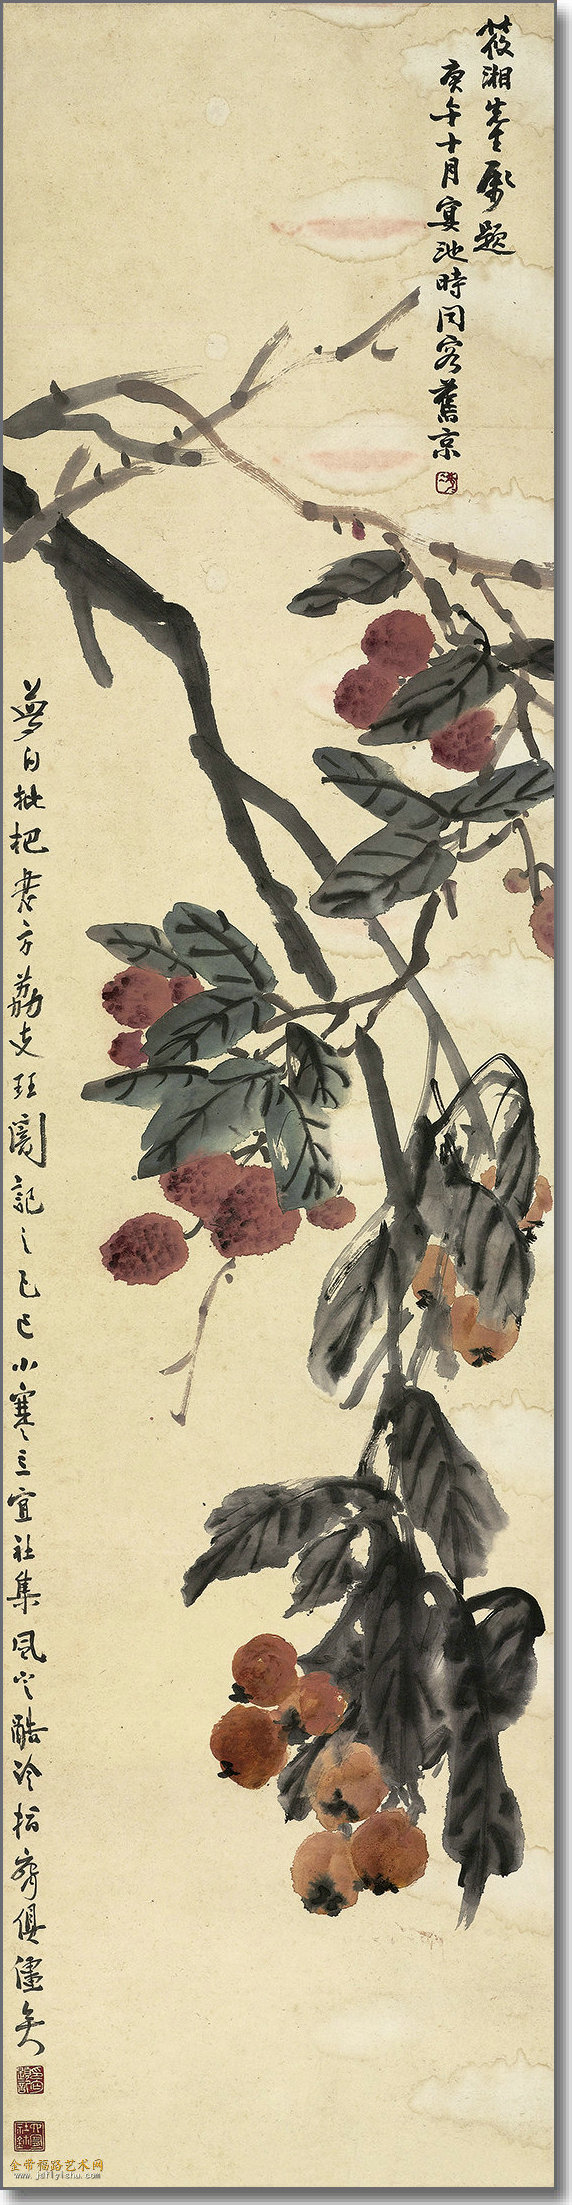 筱湘先生属题
庚午十月宴池時同客舊京
夢白枇杷老方荔支珏闇記之己巳小寒三宜社集風定酷冷指脣俱僵矣
金帶福路艺术网
www.jdflyishu.com